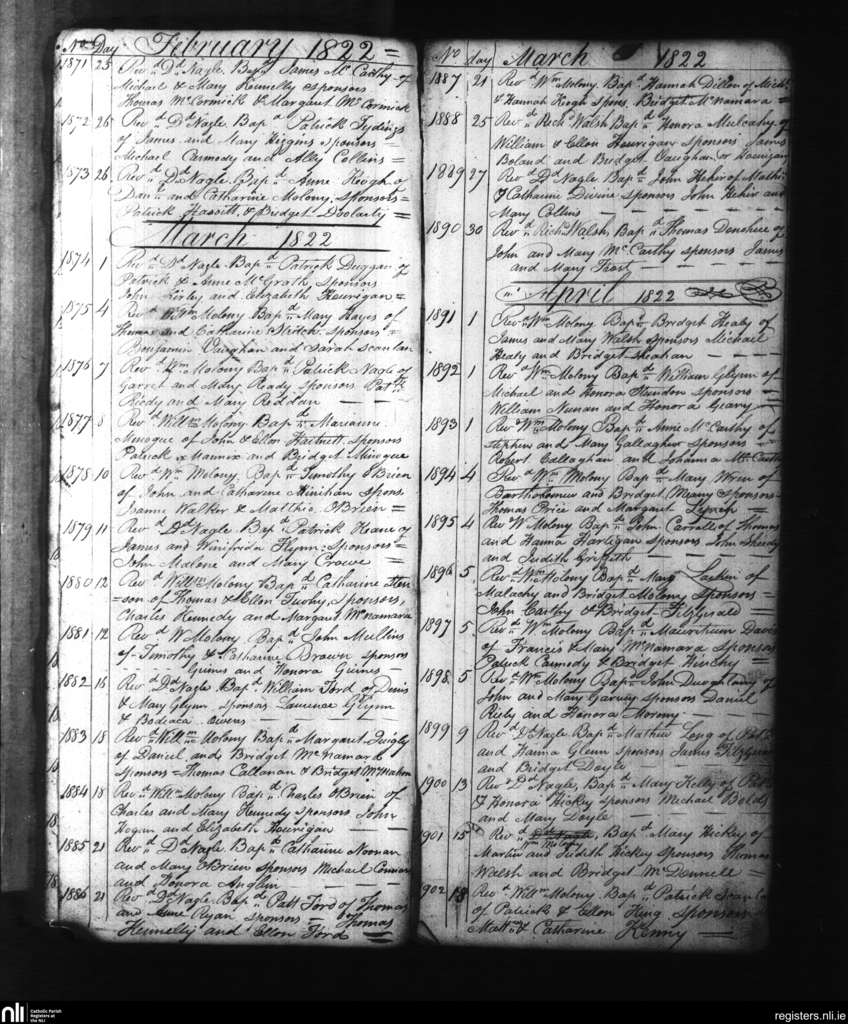 No Day February 1822 =
1871 25 Revd Dd Nagle Bapd James McCarthy of
Michael & Mary Kennelly sponsors
Thomas McCormick & Margaret McCormick
1872 26 Revd Dd Nagle Bapd Patrick Tydings
of James and Mary Higgins sponsors
Michael Carmody and Ally Collins =
1873 26 Revd Dd Nagle Bapd Anne Keogh of
Danl and Catharine Molony Sponsors =
Patrick Hassitt & Bridget =
March 1822
1874 1 Revd Dd Nagle Bapd Patrick Duggan of
Patrick & Anne McGrath Sponsors
John Kerley and Elizabeth Hourigan =
1875 4 Revd Wm Molony Bapd Mary Hayes of
Thomas and Catharine sponsors =
Benjamin Vaughan and Sarah Scanlan
1876 7 Revd Wm Molony Bapd Patrick Nagle of
Garret and Mary Ready sponsors Patk
and Mary Reddan
1877 8 Revd Willm Molony Bapd Marianne
Minogue of John & Ellen Hartnett sponsors
Patrick Mannix and Bridget Minogue
1878 10 Revd Wm Molony Bapd Timothy O'Brien
of John and Catharine Minihan Spons.
Walker & Matthew O'Brien =
1879 11 Revd Dd Nagle Bapd Patrick Keane of
James and Winifrida Flynn Sponsors =
John Malone and Mary Crowe =
1880 12 Revd Willm Molony Bapd Catharine Hen-
son of Thomas & Ellen Sponsors
Charles Kennedy and Margaret McNamara
1881 12 Revd W Molony Bapd John Mullins
of Timothy & Catharine Brown sponsors
Guins and Honora Guines -
1882 16 Revd Dd Nagle Bapd William Ford of Denis
& Mary Glynn sponsors Laurence Glynn
& Owens
1883 18 Revd Willm Molony Bapd Margaret Quigly
of Daniel and Bridget McNamara
Sponsors = Thomas Callanan & Bridget McMahon
1884 18 Revd Willm Molony Bapd Charles O'Brien of
Charles and Mary Kennedy sponsors John
Hogan and Elizabeth Hourigan
1885 21 Revd Dd Nagle Bapd Catharine Noonan
and Mary O'Brien sponsors Michael
and Honora Anglin
1886 21 Revd Dd Nagle Bapd Patt Ford of Thomas
and Anne Ryan sponsors = Thomas
Kennelly and Ellen Ford
No day March 1822
1887 21 Revd Wm Molony Bapd Hannah Dillon of Michl
& Hannah Keogh Spons. Bridget McNamara =
1888 25 Revd Richd Walsh Bapd Honora Mulcahy of
William & Ellen Hourigan Sponsors James
Boland and Bridget Vaughan or Hourigan
1889 27 Revd Dd Nagle Bapd John Hehir of
& Catharine Devine sponsors John Hehir and
Mary Collins
1890 30 Revd Richd Walsh Bapd Thomas Donohue of
John and Mary McCarthy sponsors James
and Mary Frost
April 1822
1891 1 Revd Wm Molony Bapd Bridget Healy of
James and Mary Walsh sponsors Michael
Healy and Bridget Sheahan
1892 1 Revd Wm Molony Bapd William Glynn of
Michael and Honora sponsors =
William Nunan and Honora Geary =
1893 1 Revd Wm Molony Bapd Anne McCarthy of
Stephen and Mary Gallagher sponsors =
Robert Callaghan and Johanna McCarthy
1894 4 Revd Wm Molony Bapd Mary Wren of
Bartholomew and Bridget Meany sponsors
Thomas Price and Margaret Lynch =
1895 4 Revd W Molony Bapd John Carroll of Thomas
and Hanna Hartigan sponsors John Sheedy
and Judith Griffith
1896 5 Revd Wm Molony Bapd Mary Larkin of
Malachy and Bridget Molony Sponsors =
John Carthy & Bridget Fitzgerald =
1897 5 Revd Wm Molony Bapd Mauritium Davis
of Francis & Mary McNamara Sponsors
Patrick Carmody & Bridget
1898 5 Revd Wm Molony Bapd John of
John and Mary Garvey sponsors Daniel
and Honora
1899 9 Revd Dd Nagle Bapd Mathew Long of
and Hanna Glenn sponsors James
and Bridget Doyle
1900 13 Revd Dd Nagle Bapd Mary Kelly of
& Honora Hickey sponsors Michael
and Mary Doyle
901 15 Revd Dd Nagle Bapd Mary Hickey of
Wm Molony
Martin and Judith Hickey sponsors Thomas
Walsh and Bridget McDonnell =
902 18 Revd Willm Molony Bapd Patrick
of Patrick & Ellen King Sponsors
& Catharine Kenny
nli Catholic Parish
Registers at
the NLI
registers.nli.ie